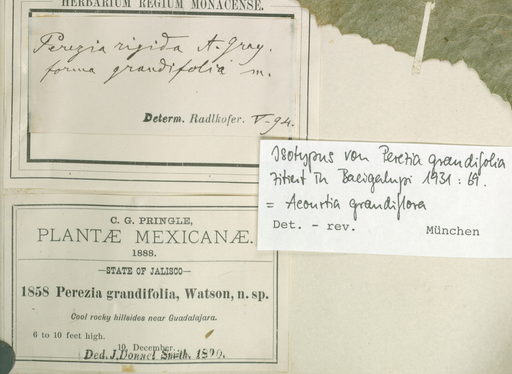 HERBARIUM REGIUM MONACENSE.
Perezia rigida A. Gray.
forma grandifolia m.
Determ. Radlkofer. V-94.
Isotypus von Perezia grandifolia
zitiert in Bacigalupi 1931: 69.
= Acourtia grandiflora
Det. - rev. München
C. G. PRINGLE,
PLANTÆ MEXICANÆ.
1888.
—STATE OF JALISCO—
1858 Perezia grandifolia, Watson, n. sp.
Cool rocky hillsides near Guadalajara.
6 to 10 feet high.
10, December.
Ded. J. Donnel Smith. 1890.